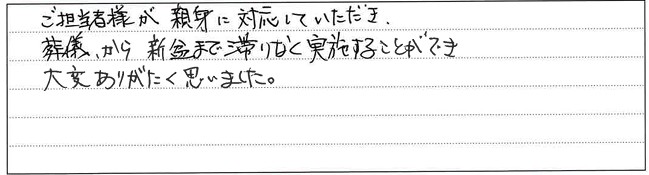 ご担当者様が 親身に対応していただき、
葬儀、から 新盆まで滞りなく実施することができ
大変ありがたく思いました。